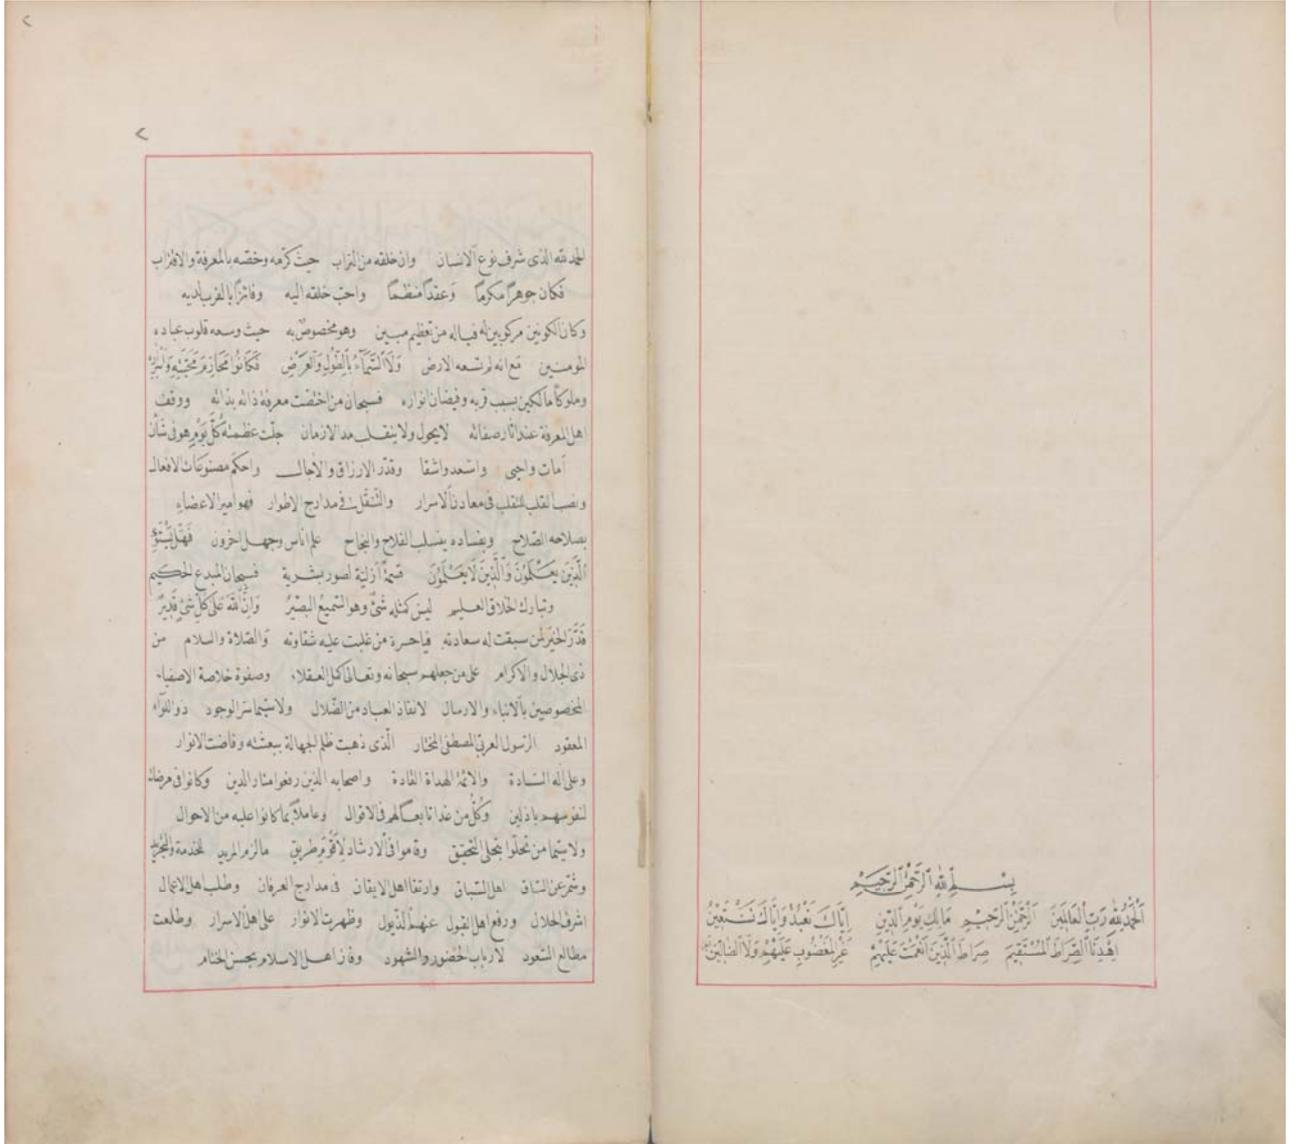 بِسْمِ اللهِ الرَّحْمٰنِ الرَّحِيمِ
اَلْحَمْدُ لِلّٰهِ رَبِّ الْعَالَمِينَ اَلرَّحْمٰنِ الرَّحِيمِ مَالِكِ يَوْمِ الدِّينِ اِيَّاكَ نَعْبُدُ وَاِيَّاكَ نَسْتَعِينُ
اِهْدِنَا الصِّرَاطَ الْمُسْتَقِيمَ صِرَاطَ الَّذِينَ اَنْعَمْتَ عَلَيْهِمْ غَيْرِ الْمَغْضُوبِ عَلَيْهِمْ وَلَا الضَّالِّينَ
٢
٢
الحمد لله الذى شرف نوع الانسان وان خلقه من التراب حيث كرّمه وخصّه بالمعرفة والاقتراب
فكان جوهرًا مكرمًا وَعقدًا منظمًا واحبّ خلقه اليه وفائزًا بالقرب لديه
وكان الكونين مركوبين له فياله من تعظيم مبين وهو مخصوصٌ به حيث وسعه قلوب عباده
المومنين مَع انه لم تسعه الارض وَلَا السَّمَآءُ بِالطُّولِ وَالْعَرْضِ فَكَانُوا مَحَبَّتِهِ
وملوكًا مالكين بسبب قربه وفيضان انواره فسبحان من اختصّت معرفة ذاته بذاته ووقف
اهل المعرفة عند اثار صفاته لايحول ولا ينقل مد الازمان جلّت عظمته كُلَّ يَوْمٍ هو فى شَأن
اَمات واحيى واسعد واشقا وقدّر الارزاق والآجال واحكم مصنوعات الافعال
ونصب القلب للتقلب فى معادن الاسرار والتّنقّل فى مدارج الاطوار فهو امير الاعضاءِ
بصلاحه الصّلاح وبفساده يسلب الفلاح والنجاح علم اناس وجهل اخرون فَهَلْ يَسْتَوِى
الَّذِينَ يَعْلَمُونَ وَالَّذِينَ لَا يَعْلَمُونَ قسمةٌ اَزليّة لصور بشرية فسبحان المبدع الحكيم
وتبارك الخلاق العليم ليس كمثله شئٌ وهو السَّميعُ البَصيرُ وَاِنَّ اللهَ عَلَى كلّ شئٍ قَديرٌ
قَدَّر الخير لمن سبقت له سعادته فياحسرة من غلبت عليه شقاوته وَالصّلاة والسلام من
ذى الجلال والاكرام على من جعلهم سبحانه وتعالى كمل العقلاء وصفوة خلاصة الاصفياء
المخصوصين بالانباء والارسال لانقاذ العباد من الضّلال ولاسيّما سرّ الوجود ذو اللواء
المعقود الرّسول العربىّ المصطفى المختار الّذى ذهبت ظلم الجهالة ببعثته وفاضت الانوار
وعلى آله السّادة والائمّة الهداة القادة واصحابه الذين رفعوا منار الدين وكانوا فى مرضات
لنفوسهم باذلين وكُلُّ من غدا تابعًا لهم فى الاقوال وعاملًا بما كانوا عليه من الاحوال
ولاسيّما من تحلّوا بتحلى التّحقيق وقاموا فى الارشاد لِاَقْوَمِ طريق مالزم المريد للخدمة والتّجريد
وشمّر عن السّاق اهل السّباق وارتقا اهل الايقان فى مدارج العرفان وطلب اهل الاعمال
اشرف الخلال ورفع اهل القبول عنهم الذّبول وظهرت الانوار على اهل الاسرار وطلعت
مطالع السّعود لارباب الحضور والشهود وفاز اهل الاسلام بحسن الختام